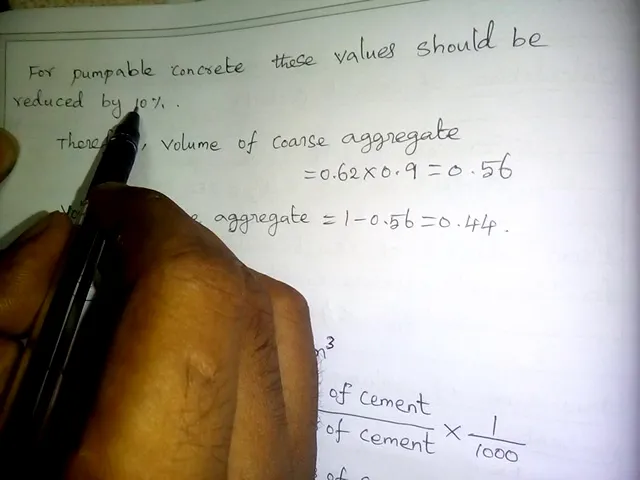 For pumpable concrete these values should be
reduced by 10%.
, Volume of coarse aggregate
= 0.62 × 0.9 = 0.56
aggregate = 1 - 0.56 = 0.44.
m³
of cement
of cement × 1/1000
of